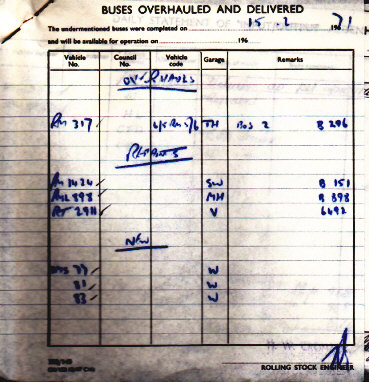 BUSES OVERHAULED AND DELIVERED
The undermentioned buses were completed on 15.2 1971
and will be available for operation on 196
Vehicle No. Council No. Vehicle code Garage Remarks
OVERHAULS
RM 317 TH B 296
REPAINTS
RM 1424 SW B 151
RML 898 MH B 898
RT 2911 V 6492
NEW
W
81 W
83 W
ROLLING STOCK ENGINEER